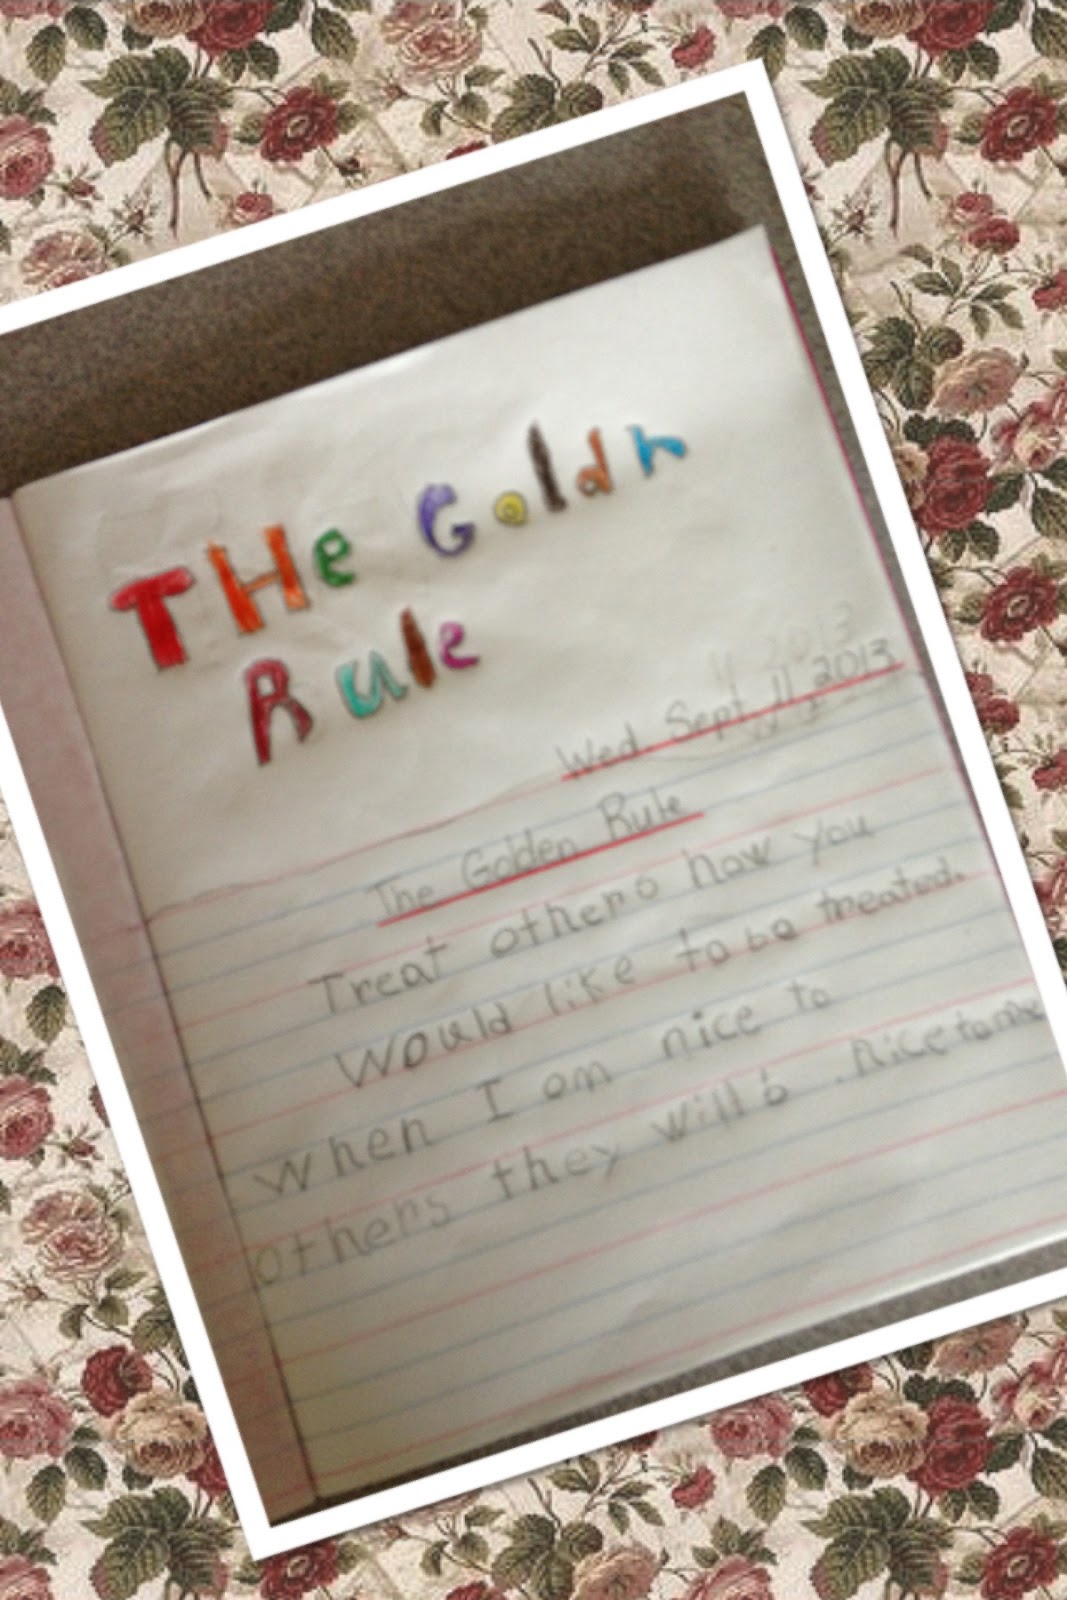 THe Goldn
Rule
Wed. Sept. 11 2013
The Golden Rule
Treat others how you
Would like to be treated.
When I am nice to
others they will b nice to me